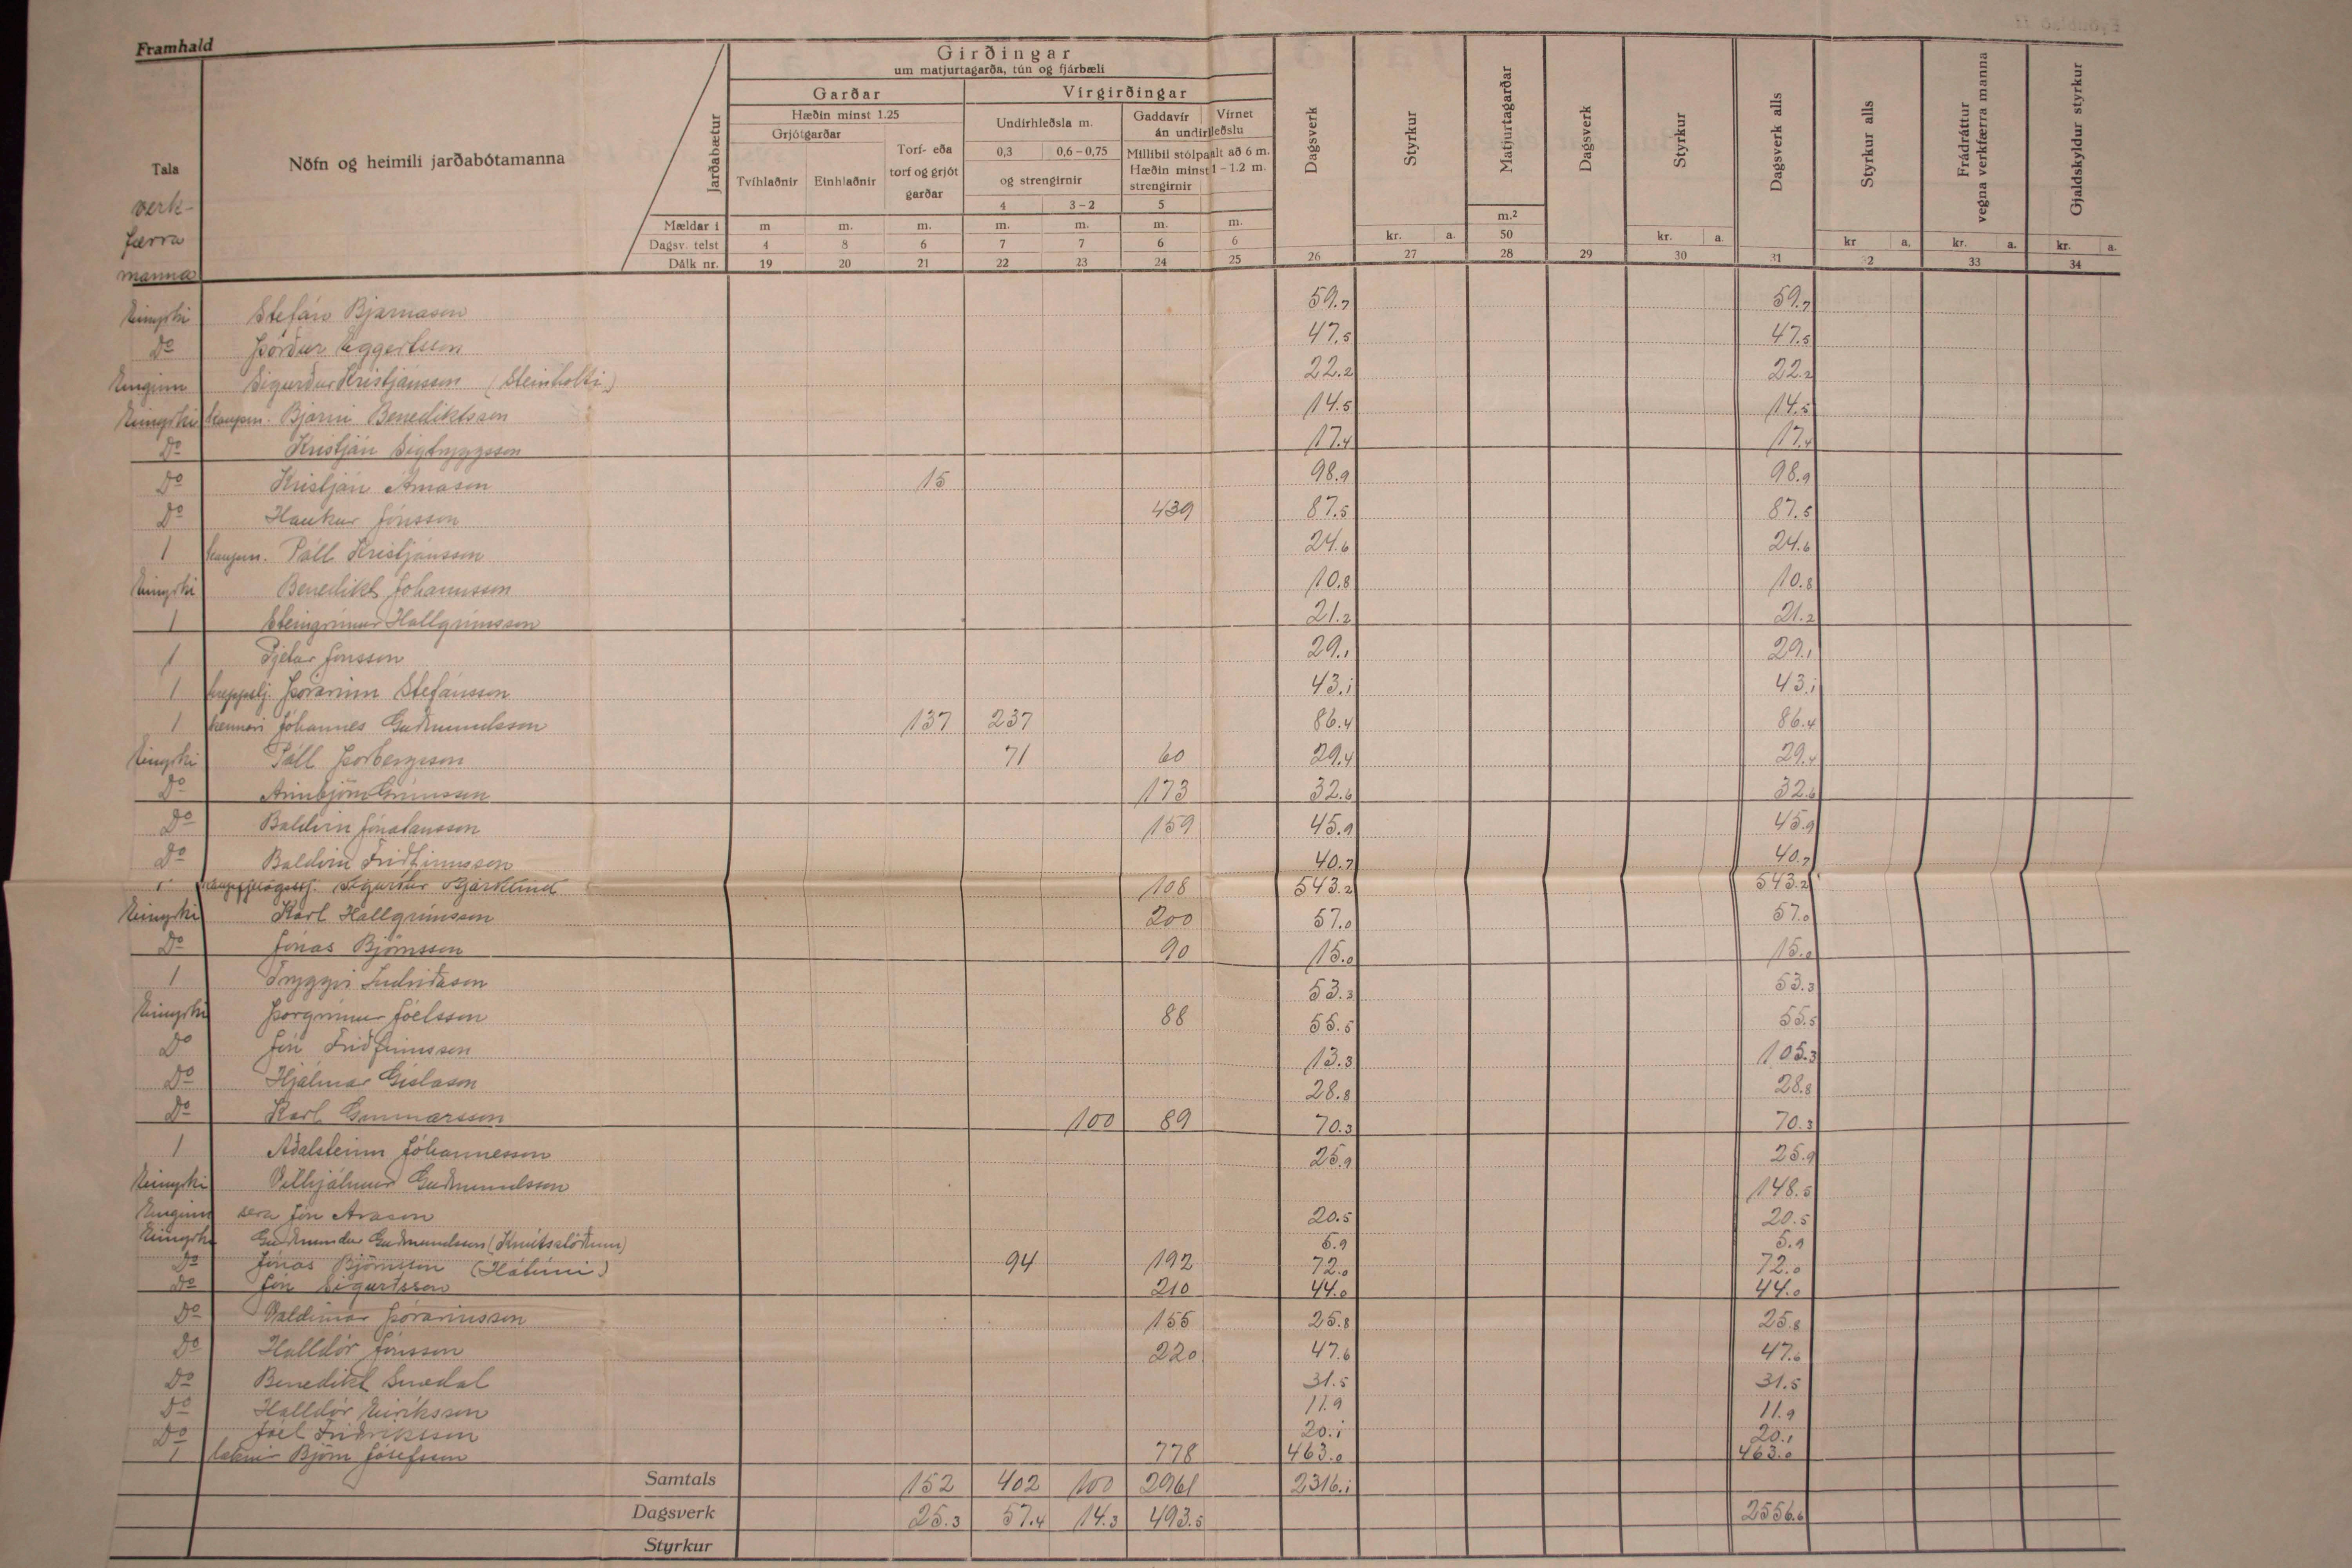 Framhald
Tala
verk-
færra
manna
Nöfn og heimili jarðabótamanna
Jarðabætur
Mældar í
Dagsv. telst
Dálk nr.
Girðingar
um matjurtagarða, tún og fjárbæli
Garðar
Vírgirðingar
Hæðin minst 1.25
Grjótgarðar
Torf- eða
torf og grjót
garðar
Tvíhlaðnir Einhlaðnir
Undirhleðsla m.
0,3 0,6-0,75
og strengirnir
4 3-2
Gaddavír Vírnet
án undirhleðslu
Millibil stólpa alt að 6 m.
Hæðin minst 1-1.2 m.
strengirnir
5
Dagsverk
Styrkur
Matjurtagarðar
Dagsverk
Styrkur
Dagsverk alls
Styrkur alls
Frádráttur
vegna verkfærra manna
Gjaldskyldur styrkur
m m. m. m. m. m. m. kr. a. m.² kr. a. kr a. kr. a. kr. a.
4 8 6 7 7 6 6 50
19 20 21 22 23 24 25 26 27 28 29 30 31 32 33 34
Einyrki Stefán Bjarnason 59.7 59.7
Do Þórður Eggertsson 47.5 47.5
Enginn Sigurður Kristjánsson (Steinholti) 22.2 22.2
Einyrki kaupm. Bjarni Benediktsson 14.5 14.5
Do Kristján Sigtryggsson 17.4 17.4
Do Kristján Árnason 15 98.9 98.9
Do Haukur Jónsson 439 87.5 87.5
1 kaupm. Páll Kristjánsson 24.6 24.6
Einyrki Benedikt Jóhannsson 10.8 10.8
1 Steingrímur Hallgrímsson 21.2 21.2
1 Pjetur Jónsson 29.1 29.1
1 hreppstj. Þórarinn Stefánsson 43.1 43.1
1 kennari Jóhannes Guðmundsson 137 237 86.4 86.4
Einyrki Páll Þorbergsson 71 60 29.4 29.4
Do Arinbjörn Grímsson 173 32.6 32.6
Do Baldvin Jónatansson 159 45.9 45.9
Do Baldvin Friðfinnsson 40.7 40.7
1 kaupfjelagsstj. Sigurður Bjarklind 108 543.2 543.2
Einyrki Karl Hallgrímsson 200 57.0 57.0
Do Jónas Björnsson 90 15.0 15.0
1 Tryggvi Indriðason 53.3 53.3
Einyrki Þorgrímur Jóelsson 88 55.5 55.5
Do Jón Friðfinnsson 13.3 105.3
Do Hjálmar Gíslason 28.8 28.8
Do Karl Gunnarsson 100 89 70.3 70.3
1 Aðalsteinn Jóhannesson 25.9 25.9
Einyrki Vilhjálmur Guðmundsson 148.5
Enginn sera Jón Arason 20.5 20.5
Einyrki Guðmundur Guðmundsson (Knútsstöðum) 5.9 5.9
Do Jónas Björnsson (Hátúni) 94 192 72.0 72.0
Do Jón Sigurðsson 210 44.0 44.0
Do Valdimar Þórarinsson 155 25.8 25.8
Do Halldór Jónsson 220 47.6 47.6
Do Benedikt Snædal 31.5 31.5
Do Halldór Eiríksson 11.9 11.9
Do Jóel Friðriksson 20.1 20.1
1 læknir Björn Jósefsson 778 463.0 463.0
Samtals 152 402 100 2961 2316.1
Dagsverk 25.3 57.4 14.3 493.5 2556.6
Styrkur